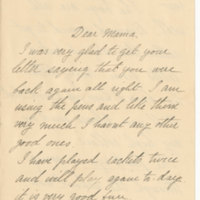 Dear Mama,
I was very glad to get your
letter saying that you were
back again all right. I am
using the pens and like them
very much. I havnt any other
good ones
I have played rackets twice
and will play again to day
it is very good fun